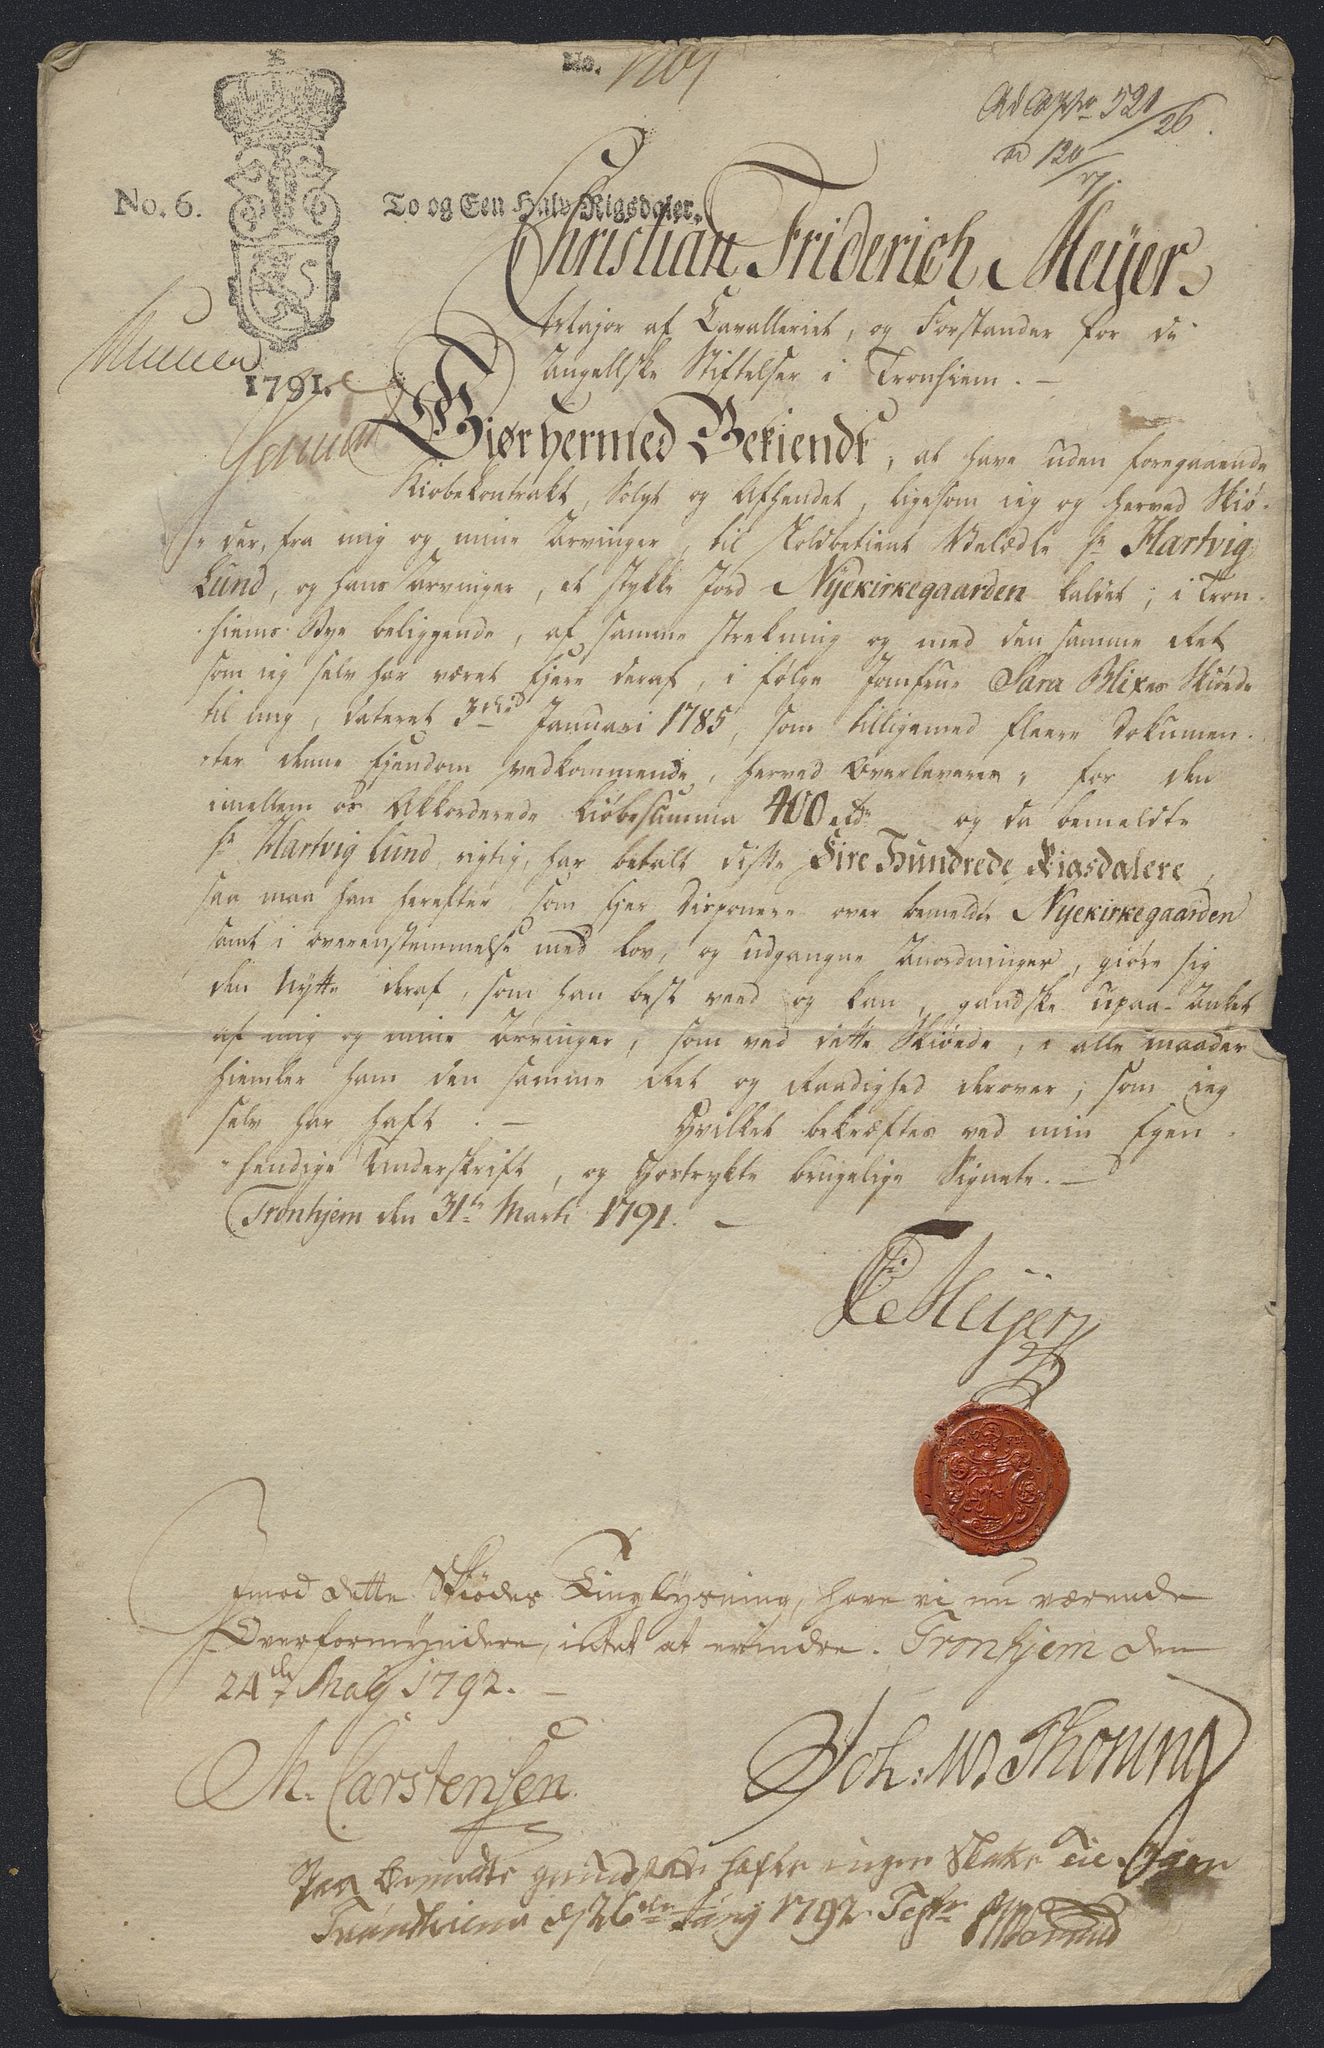 No. 1709
Ad Appr 521/26.
No. 6.
To og Een Halv Rigsdaler.
Christian Friderich Meyer.
Major af Cavalleriet, og Forstander for de
Angellske Stiftelser i Tronhiem. –
1791.
Giør hermed Bekiendt, at have uden foregaaende
Kiøbekontrakt, Solgt og Afhendet, ligesom ieg og herved Skiø-
der, fra mig og mine Arvinger, til Toldbetient Velædle Sr Hartvig
Lund, og hans Arvinger, et stykke Jord Nyekirkegaarden kaldet, i Tron-
hiems Bye beliggende, af samme strekning og med den samme Ret
som ieg selv har været Ejere deraf, i følge Jomfrue Sara Blixes Skiøde
til mig, dateret 3die Januari 1785, som tilligemed fleere Dokumen-
ter denne Ejendom vedkommende, herved Overleveres, for den
imellem os Akkorderede Kiøbesumma 400 rdr og da bemeldte
Sr Hartvig Lund rigtig har betalt disse Fire Hundrede Rigsdalere,
saa maa han herefter som Ejer disponere over bemeldte Nyekirkegaarden
samt i overensstemmelse med Lov, og udgangne Anordninger, giøre sig
den Nytte deraf, som han best veed og kan, gandske upaa-Anket
af mig og mine Arvinger, som ved dette Skiøde, i alle maader
hiemler ham den samme Ret og Raadighed derover, som ieg
selv har haft. – Hvilket bekræftes ved min Egen-
hendige Underskrift, og hostrykte brugelige Signete. –
Tronhjem den 31te Marti 1791. –
CF Meyer
Imod dette Skiødes Tinglysning, have vi nu værende
Overformyndere, intet at erindre. Tronhjem den
24de May 1792. –
M. Carstensen
Joh. W. Thoning
grund hafte ingen Skatte Til
Trondhiem d 26de Juny 1792